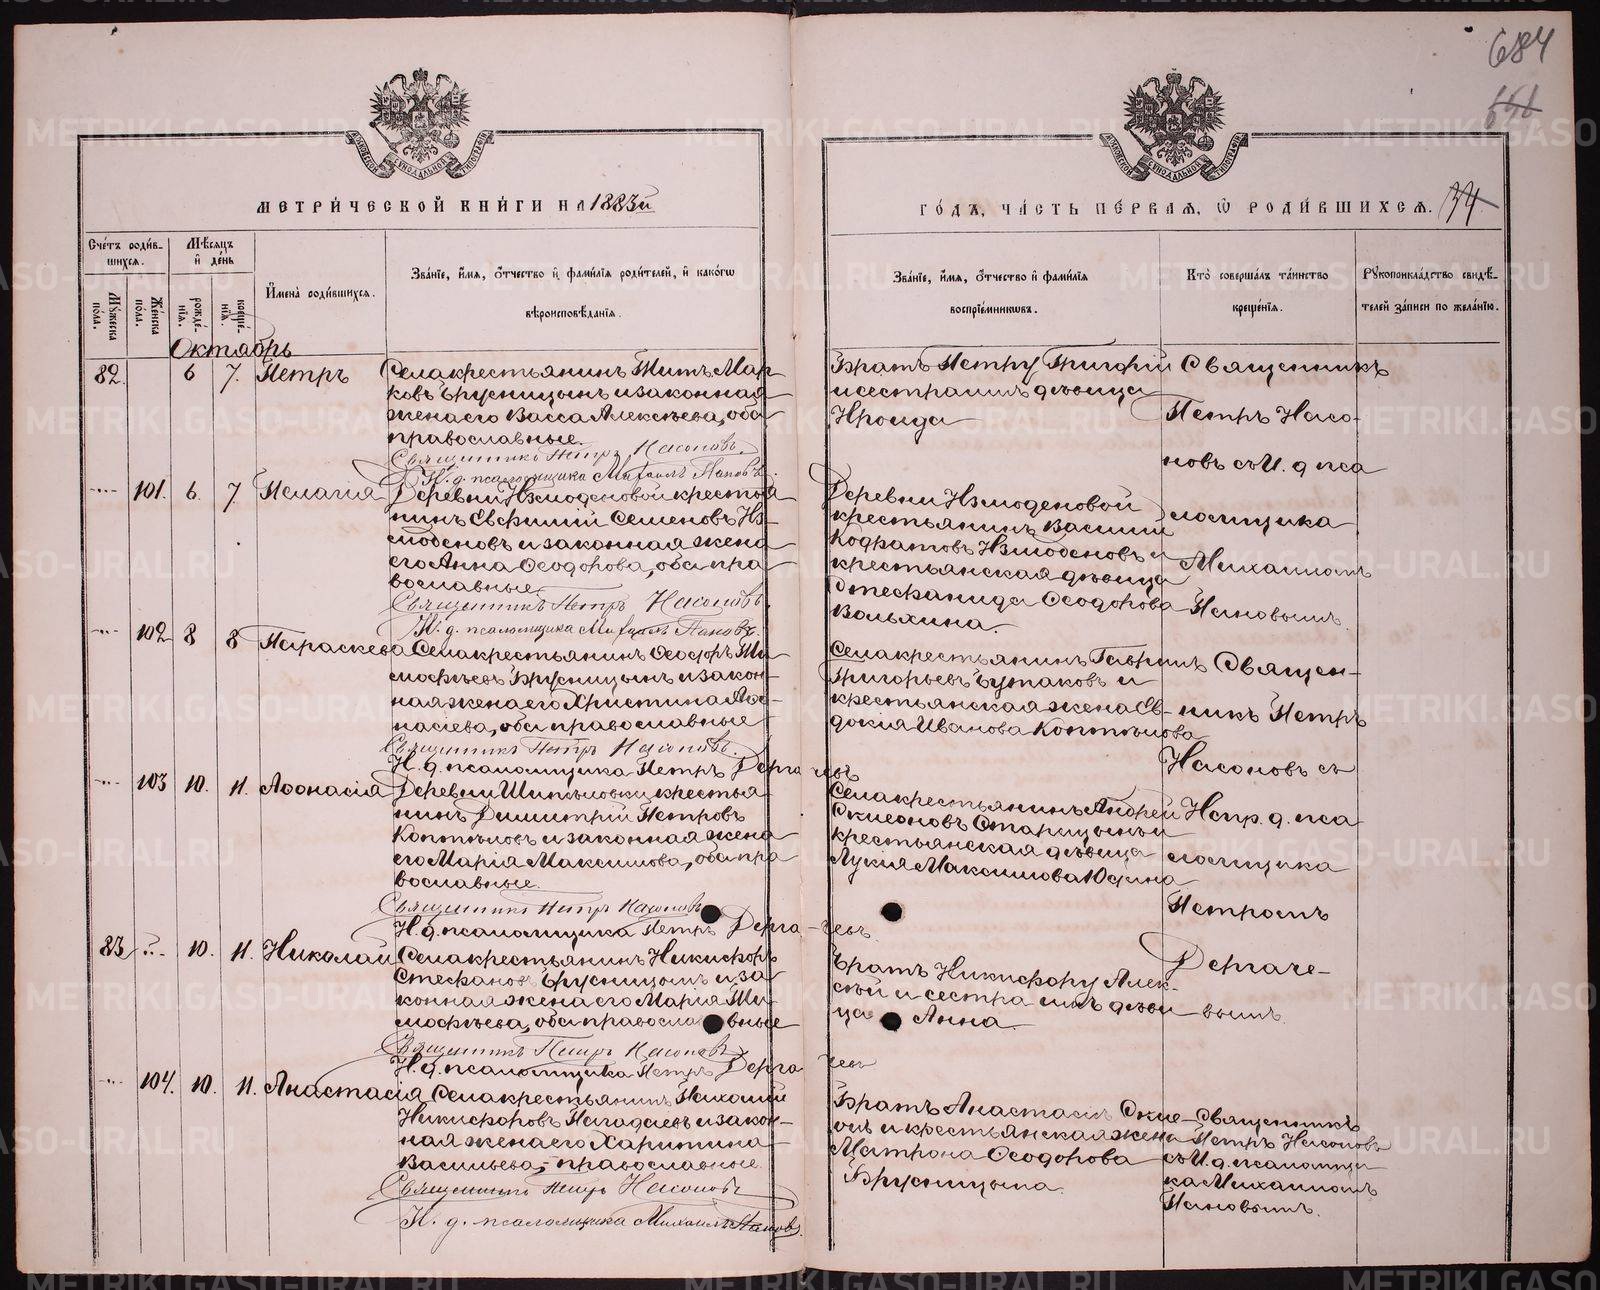 684
МЕТРИ́ЧЕСКОЙ КНИ́ГИ НА 1883й
ГО́ДЪ, ЧА́СТЬ ПЕ́РВАЯ, Ѡ РОДИ́ВШИХСЯ. 34
Сче́тъ роди́в-
шихся.
Му́жеска по́ла.
Же́нска по́ла.
Мѣ́сяцъ и де́нь
рожде́-
нїя.
креще́-
нїя.
И҆мена̀ роди́вшихся.
Зва́нїе, и҆́мя, ѻ҆́тчество и҆ фами́лїя роди́телей, и҆ како́гѡ
вѣроисповѣ́данїя.
Зва́нїе, и҆́мя, ѻ҆́тчество и҆ фами́лїя
воспрїе́мникѡвъ.
Кто̀ соверша́лъ та́инство
креще́нїя.
Рꙋкоприкла́дство свидѣ́-
телей за́писи по жела́нїю.
Октябрь
82. 6 7. Петръ
Села крестьянинъ Титъ Мар-
ковъ Брусницынъ и законная
жена его Васса Алексѣева, оба
православные.
Священникъ Петръ Насоновъ.
И. д. псаломщика Михаилъ Пановъ.
Братъ Петру Григорій
и сестра имъ дѣвица
Ироида
Священникъ
Петръ Насо-
новъ съ И. д. пса
ломщика
Михаиломъ
Пановымъ.
101. 6. 7. Пелагія
Деревни Измоденовой крестья
нинъ Евфимій Семеновъ Из-
моденовъ и законная жена
его Анна Ѳеодорова, оба пра-
вославные
Священникъ Петръ Насоновъ.
И. д. псаломщика Михаилъ Пановъ.
Деревни Измоденовой
крестьянинъ Василій
Кодратовъ Измоденовъ и
крестьянская дѣвица
Стефанида Ѳеодорова
Вольхина.
102 8 8 Параскева
Села крестьянинъ Ѳеодоръ Ти-
моѳѣевъ Брусницынъ и закон-
ная жена его Христина Аѳо-
насіева, оба православные
Священникъ Петръ Насоновъ.
И. д. псаломщика Петръ Дергачевъ
Села крестьянинъ Гавріилъ
Григорьевъ Бутаковъ и
крестьянская жена Ев-
докія Иванова Коптѣлова
Священ-
никъ Петръ
Насоновъ съ
Испр. д. пса
ломщика
Петромъ
Дергаче-
вымъ.
103 10. 11. Аѳонасія
Деревни Шипѣловки крестья-
нинъ Димитрій Петровъ
Коптѣловъ и законная жена
его Марія Максимова, оба пра-
вославные.
Священникъ Петръ Насоновъ
И. д. псаломщика Петръ Дерга-чевъ.
Села крестьянинъ Андрей
Симеоновъ Старицынъ и
крестьянская дѣвица
Лукія Максимова Юдина
83 10. 11. Николай
Села крестьянинъ Никифоръ
Стефановъ Брусницынъ и за-
конная жена его Марія Ти-
моѳѣева, оба православные
Священникъ Петръ Насоновъ
И. д. псаломщика Петръ Дергачевъ
Братъ Никифору Алек-
сѣй и сестра имъ дѣви-
ца Анна.
104. 10. 11. Анастасія
Села крестьянинъ Михаилъ
Никифоровъ и закон-
ная жена его Харитина
Васильева, православные.
Священникъ Петръ Насоновъ
И. д. псаломщика Михаилъ Пановъ.
Братъ Анастасіи Симе-
онъ и крестьянская жена
Матрона Ѳеодорова
Брусницына.
Священникъ
Петръ Насоновъ
съ И. д. псаломщи-
ка Михаиломъ
Пановымъ.
METRIKI.GASO-URAL.RU